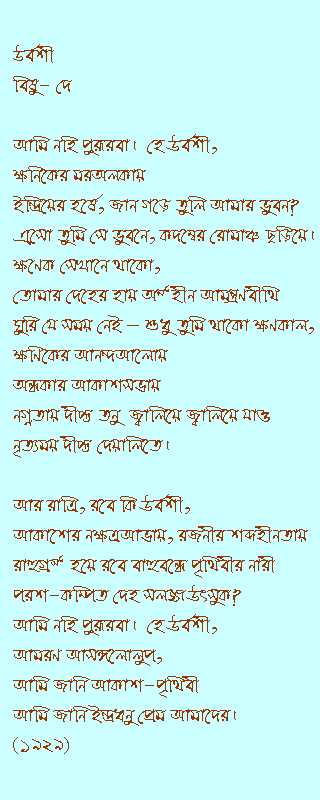 উর্বশী
বিষ্ণু- দে
আমি নহি পুরূরবা। হে উর্বশী,
ক্ষনিকের মরঅলকায়
ইন্দ্রিয়ের হর্ষে, জান গড়ে তুলি আমার ভুবন?
এসো তুমি সে ভুবনে, কদম্বের রোমাঞ্চ ছড়িয়ে।
ক্ষণেক সেখানে থাকো,
তোমার দেহের হায় অন্তহীন আমন্ত্রণবীথি
ঘুরি যে সময় নেই - শুধু তুমি থাকো ক্ষণকাল,
ক্ষণিকের আনন্দআলোয়
অন্ধকার আকাশসভায়
নগ্নতায় দীপ্ত তনু জ্বালিয়ে জ্বালিয়ে যাও
নৃত্যময় দীপ্ত দেয়ালিতে।
আর রাত্রি, রবে কি উর্বশী,
আকাশের নক্ষত্রআভায়, রজনীর শব্দহীনতায়
রাহুগ্রস্ত হয়ে রবে বাহুবন্ধে পৃথিবীর নারী
পরশ-কম্পিত দেহ সলজ্জ উৎসুক?
আমি নহি পুরূরবা। হে উর্বশী,
আমরণ আসঙ্গলোলুপ,
আমি জানি আকাশ-পৃথিবী
আমি জানি ইন্দ্রধনু প্রেম আমাদের।
(১৯২৯)